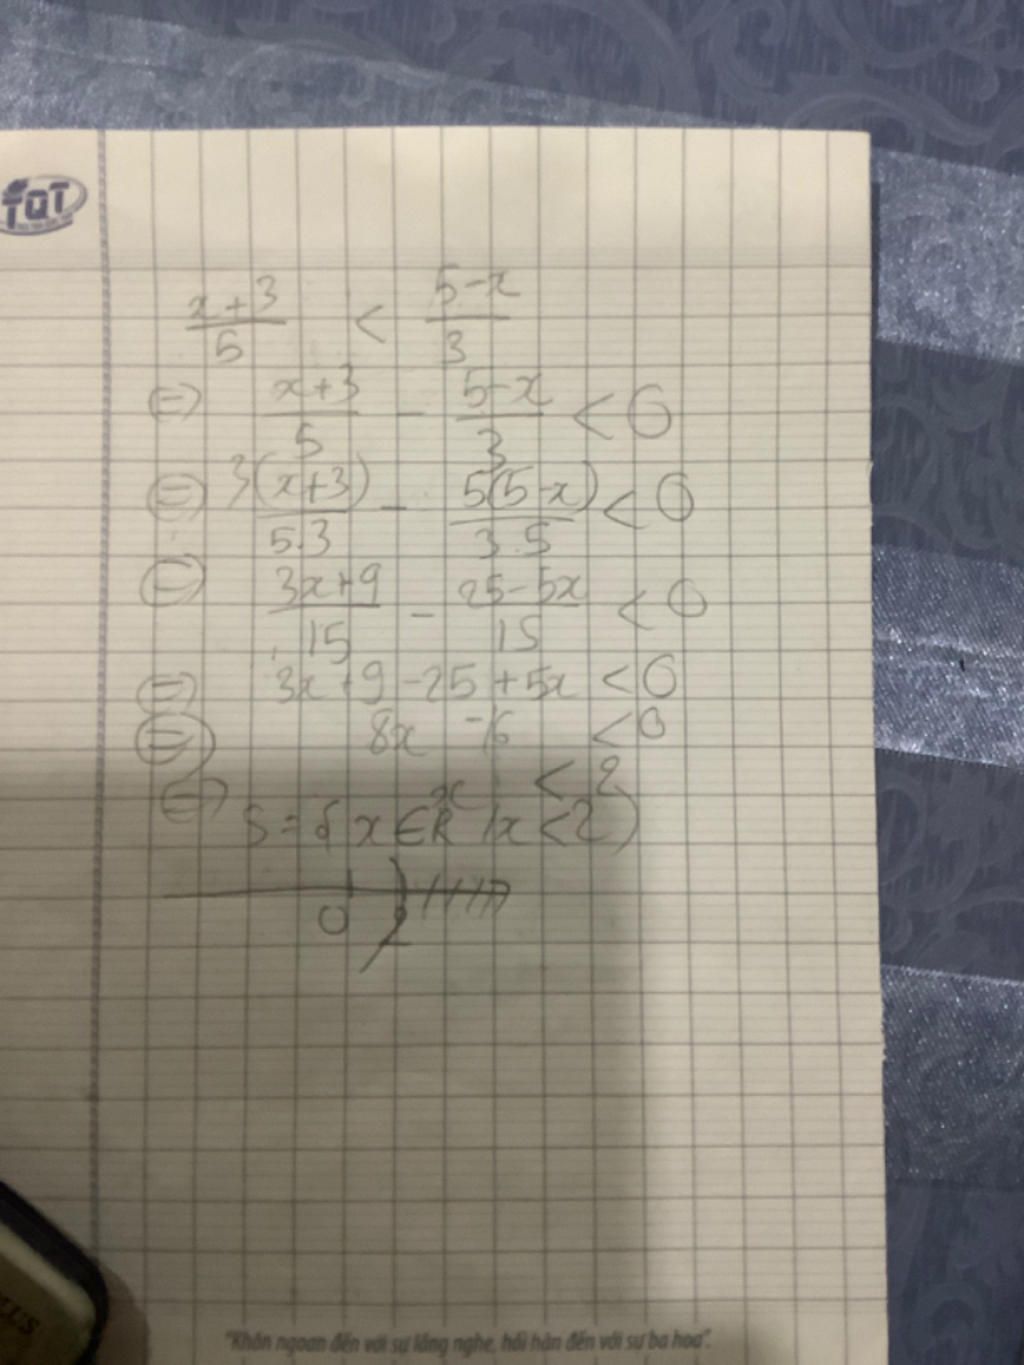 TQT
x+3/5 < 5-x/3
⇔ x+3/5 - 5-x/3 < 0
⇔ 3(x+3)/5.3 - 5(5-x)/3.5 < 0
⇔ 3x+9/15 - 25-5x/15 < 0
⇔ 3x+9-25+5x < 0
⇔ 8x -16 < 0
⇔ x < 2
S = { x ∈ R / x < 2 }
0 2
"Khôn ngoan đến với sự lắng nghe, hối hận đến với sự ba hoa".